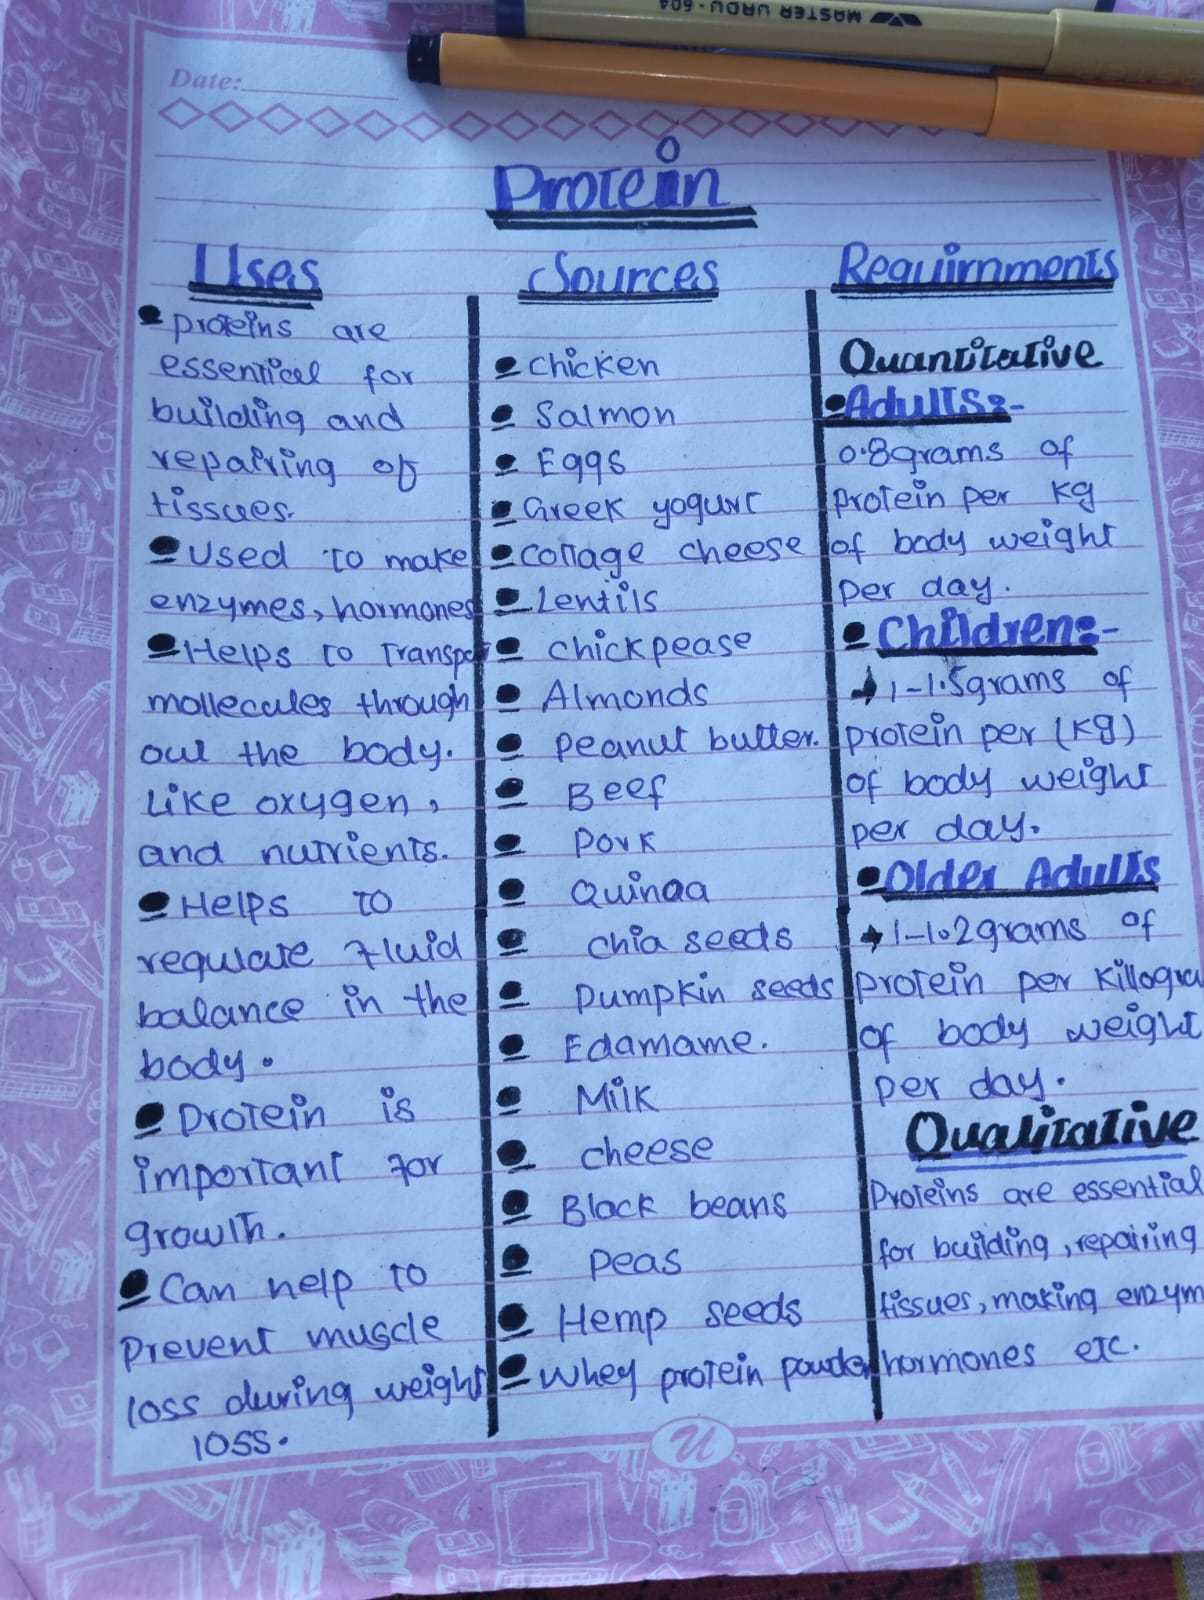 MASTER URDU-604
Date:
Protein
Uses
• Proteins are
essential for
building and
repairing of
tissues.
• Used to make
enzymes, hormones
• Helps to transpo
mollecules through
out the body.
Like oxygen,
and nutrients.
• Helps to
regulate fluid
balance in the
body.
• Protein is
important for
growth.
• Can help to
Prevent muscle
loss during weight
loss.
Sources
• Chicken
• Salmon
• Eggs
• Greek yogurt
• Cottage cheese
• Lentils
• Chickpease
• Almonds
• Peanut butter.
• Beef
• Pork
• Quinaa
• Chia seeds
• Pumpkin seeds
• Edamame.
• Milk
• Cheese
• Black beans
• Peas
• Hemp seeds
• Whey protein powder
Requirnments
Quantitative
• Adults:-
0.8grams of
Protein per Kg
of body weight
per day.
• Children:-
→ 1-1.5grams of
protein per (Kg)
of body weight
per day.
• Older Adults
→ 1-1.2grams of
protein per Killogra
of body weight
per day.
Qualitative
Proteins are essential
for building, repairing
tissues, making enzym
hormones etc.
U